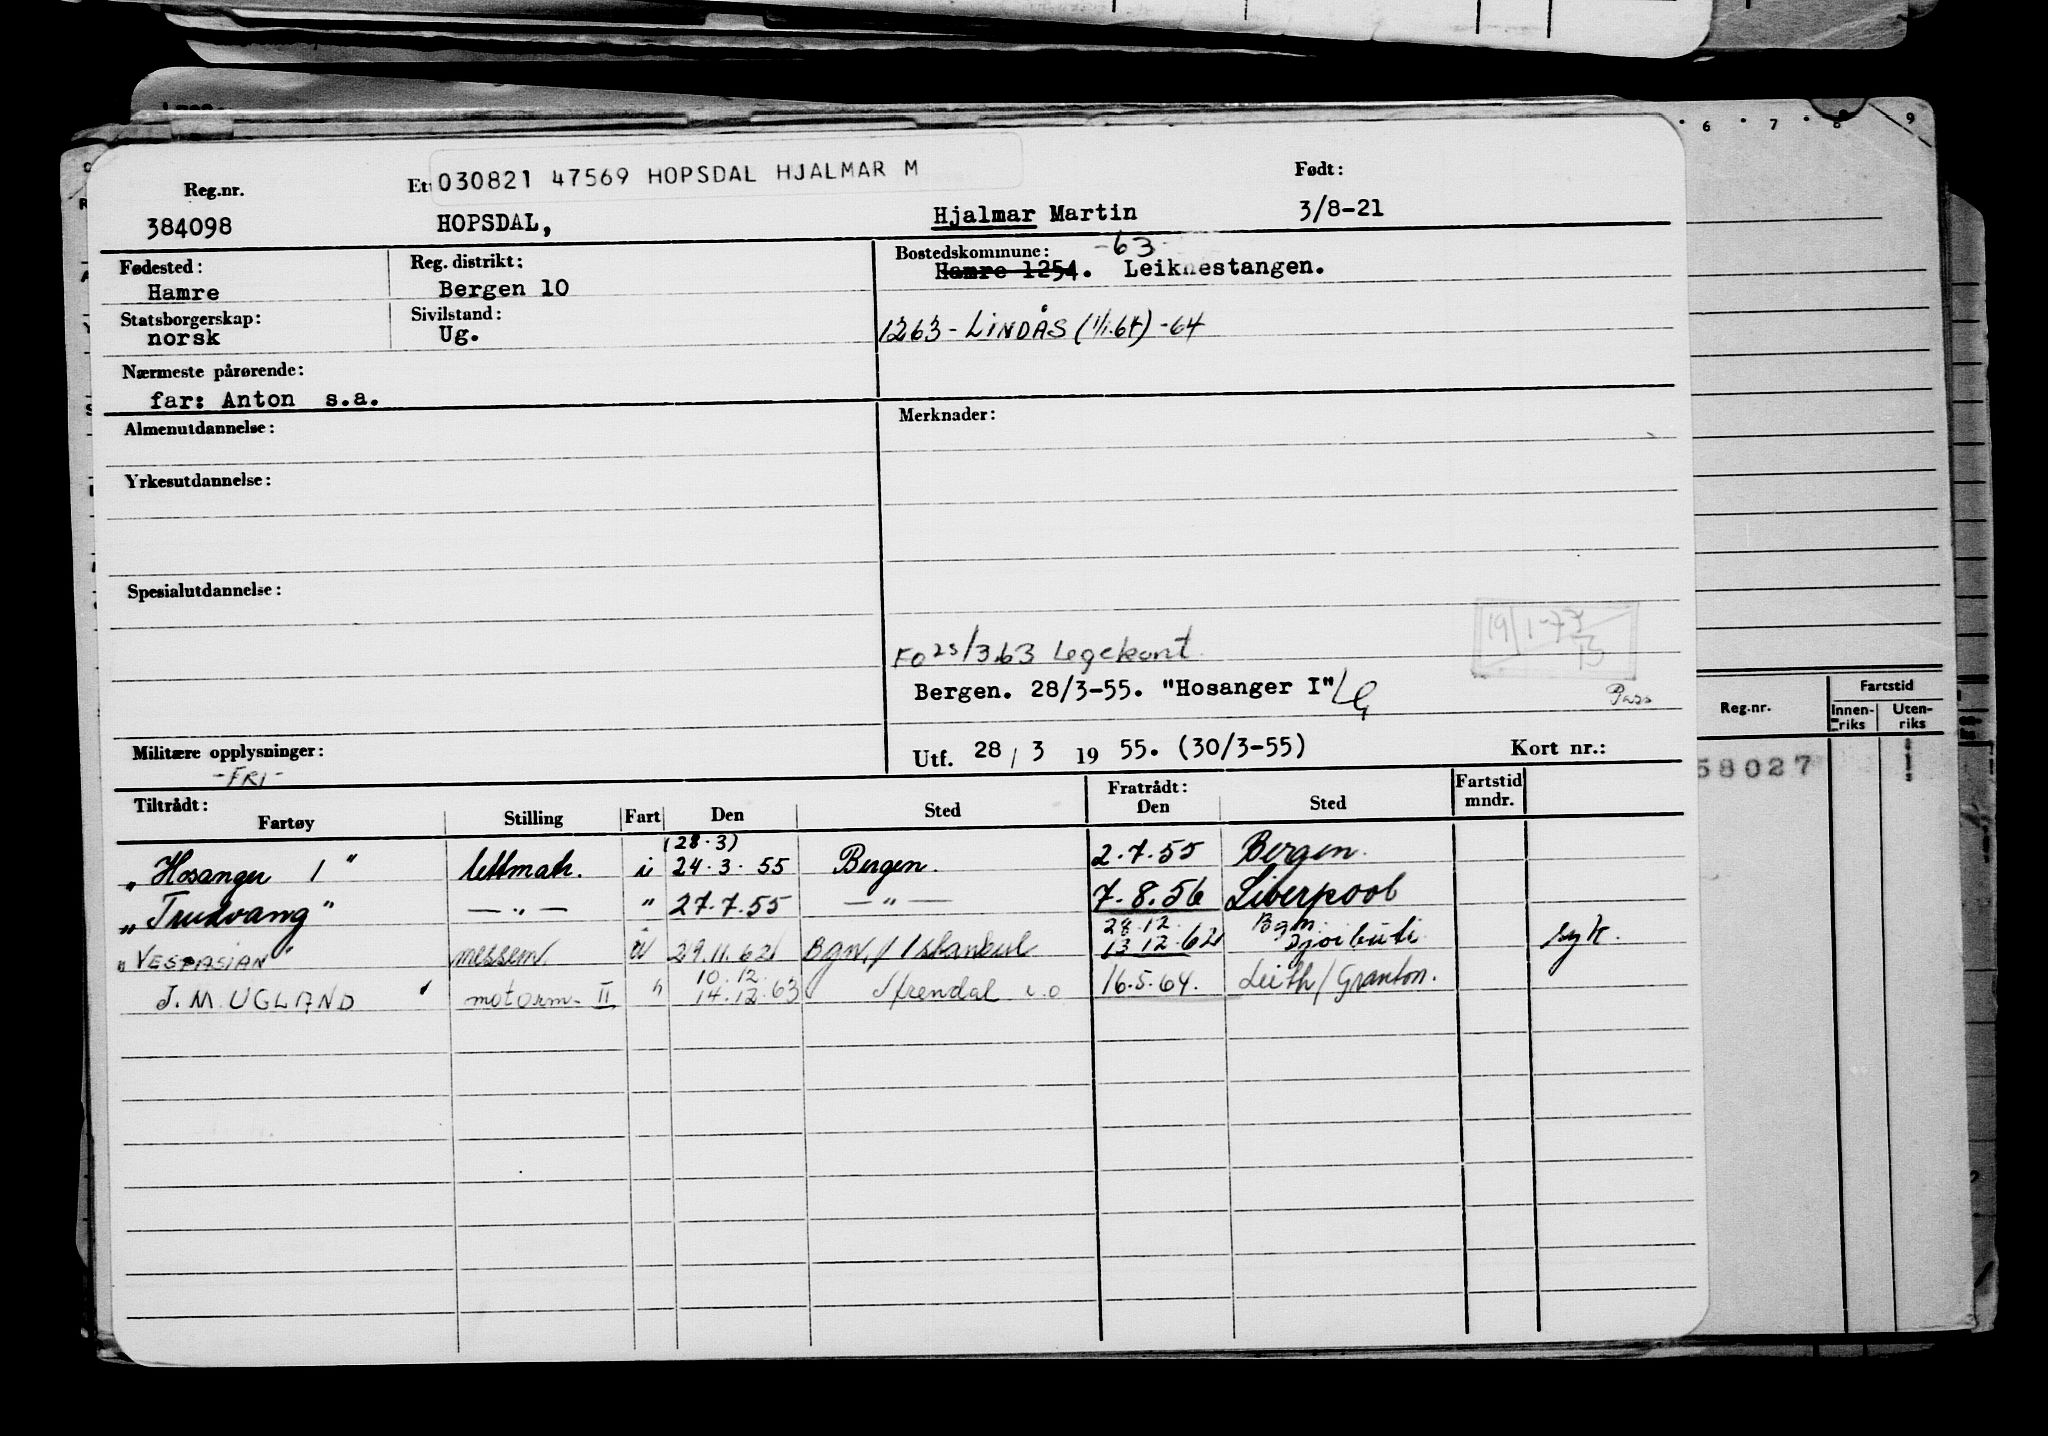 6 · 7 · 8 9
Reg.nr. Et: 030821 47569 HOPSDAL HJALMAR M Født:
384098 HOPSDAL, Hjalmar Martin 3/8-21
Fødested: Reg. distrikt: Bostedskommune: -63-
Hamre Bergen 10 Hamre 1254. Leiknestangen.
Statsborgerskap: Sivilstand:
norsk Ug. 1263 - LINDÅS (1/1.64) -64
Nærmeste pårørende:
far: Anton s.a.
Almenutdannelse: Merknader:
Yrkesutdannelse:
Spesialutdannelse:
19/1-73
FO 25/3.63 Legekont.
Bergen. 28/3-55. "Hosanger I" Pass
Militære opplysninger: Utf. 28 / 3 19 55. (30/3-55) Kort nr.:
-FRI-
Tiltrådt: Fratrådt: Fartstid
Fartøy Stilling Fart Den Sted Den Sted mndr.
(28.3)
"Hosanger I" lettmatr. i 24.3.55 Bergen. 2.7.55 Bergen.
"Trudvang" — " — " 27.7.55 — " — 7.8.56 Liverpool
28.12. Bgn.
"VESPASIAN" messem. u 29.11.62 Bgn./Istanbul 13.12.62 Djibouti syk.
10.12.
J. M. UGLAND motorm. II " 14.12.63 16.5.64. Leith/Granton.
Reg.nr. Fartstid
Innen-riks Uten-riks
58027